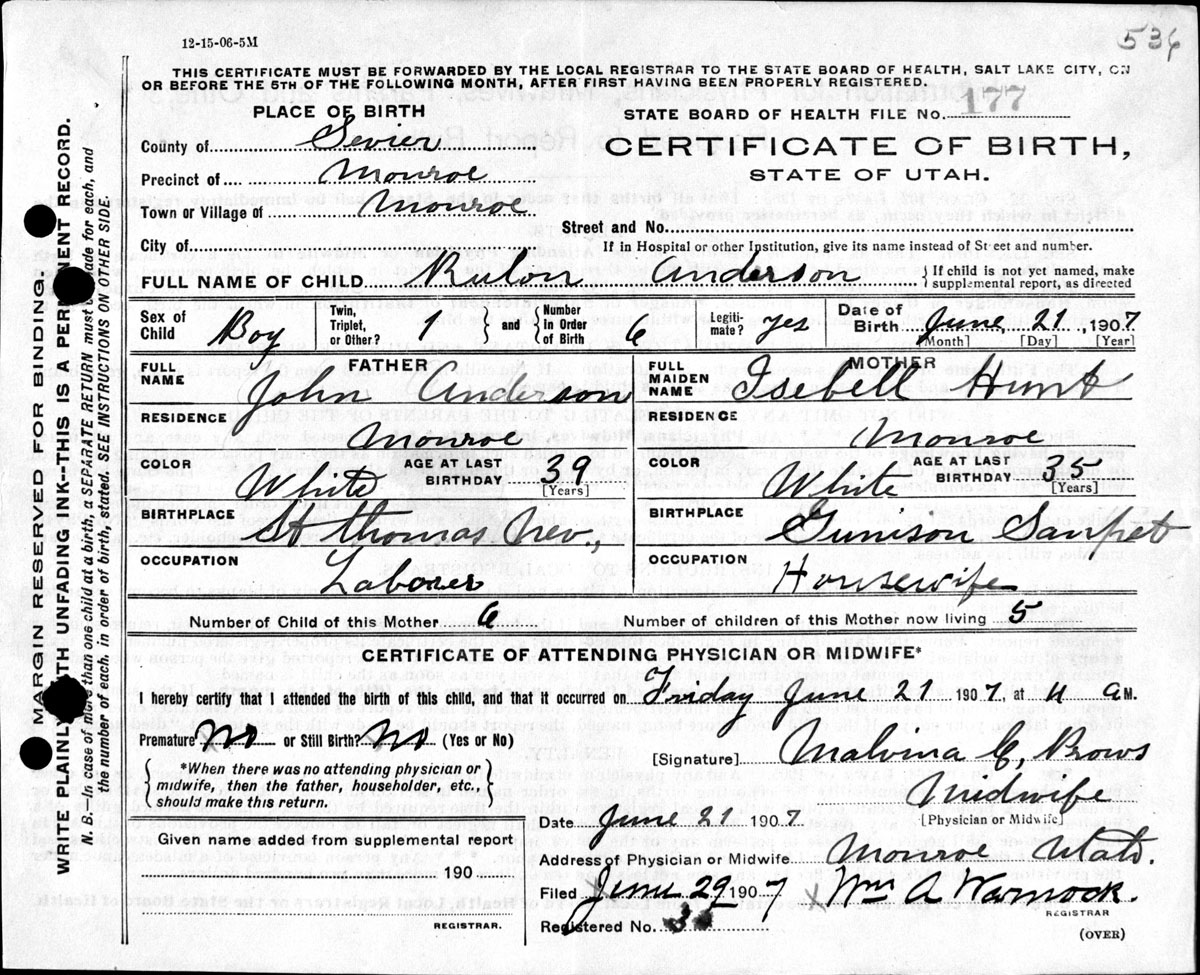 12-15-06-5M
536
THIS CERTIFICATE MUST BE FORWARDED BY THE LOCAL REGISTRAR TO THE STATE BOARD OF HEALTH, SALT LAKE CITY, ON
OR BEFORE THE 5TH OF THE FOLLOWING MONTH, AFTER FIRST HAVING BEEN PROPERLY REGISTERED.
PLACE OF BIRTH
County of Sevier
Precinct of Monroe
Town or Village of Monroe
City of
STATE BOARD OF HEALTH FILE No. 177
CERTIFICATE OF BIRTH,
STATE OF UTAH.
Street and No.
If in Hospital or other Institution, give its name instead of Street and number.
FULL NAME OF CHILD Rulon Anderson
If child is not yet named, make
supplemental report, as directed
Sex of Child Boy
Twin, Triplet, or Other? 1
and
Number in Order of Birth 6
Legitimate? yes
Date of Birth June 21, 1907
[Month] [Day] [Year]
FATHER
FULL NAME John Anderson
RESIDENCE Monroe
COLOR White
AGE AT LAST BIRTHDAY 39
[Years]
BIRTHPLACE St Thomas Nev.,
OCCUPATION Laborer
MOTHER
FULL MAIDEN NAME Isebell Hunt
RESIDENCE Monroe
COLOR White
AGE AT LAST BIRTHDAY 35
[Years]
BIRTHPLACE Gunison Sanpet
OCCUPATION Housewife
Number of Child of this Mother 6
Number of children of this Mother now living 5
CERTIFICATE OF ATTENDING PHYSICIAN OR MIDWIFE*
I hereby certify that I attended the birth of this child, and that it occurred on Friday June 21 1907, at 4 a M.
Premature? No or Still Birth? No (Yes or No)
*When there was no attending physician or
midwife, then the father, householder, etc.,
should make this return.
Given name added from supplemental report
190
REGISTRAR.
[Signature] Malvina C,
Midwife
[Physician or Midwife]
Date June 21 1907
Address of Physician or Midwife Monroe Utah.
Filed June 29 1907 Wm A Warnock.
REGISTRAR
Registered No.
(OVER)
MARGIN RESERVED FOR BINDING.
WRITE PLAINLY WITH UNFADING INK--THIS IS A PERMANENT RECORD.
N. B.—In case of more than one child at a birth, a SEPARATE RETURN must be made for each, and
the number of each, in order of birth, stated. SEE INSTRUCTIONS ON OTHER SIDE.